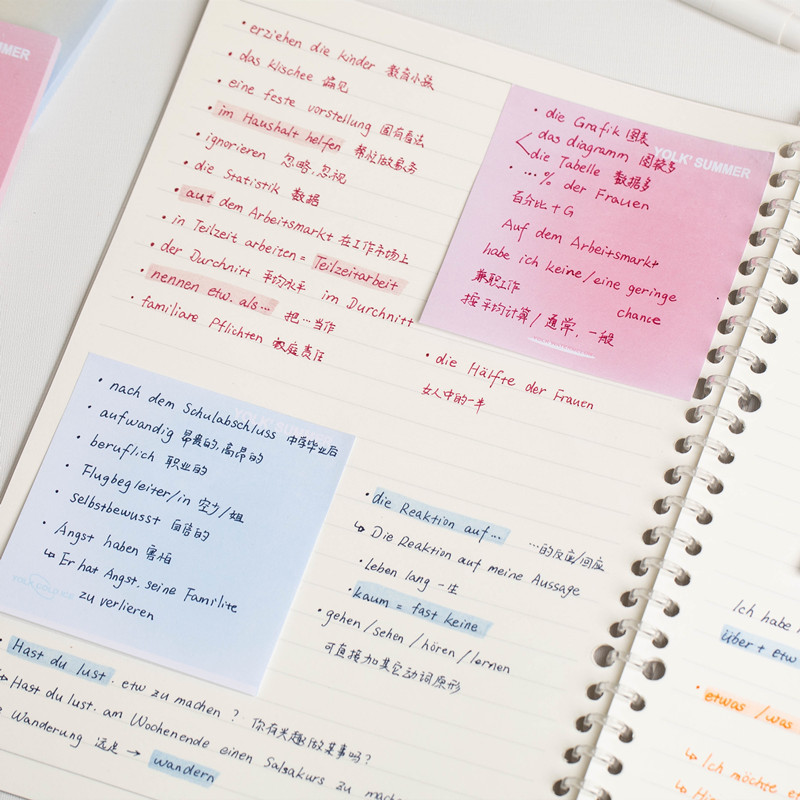 MMER
• erziehen die kinder 教育小孩
• das klischee 偏见
• eine feste vorstellung 固有看法
• im Haushalt helfen 帮忙做家务
• ignorieren 忽略,忽视
• die Statistik 数据
• auf dem Arbeitsmarkt 在工作市场上
• in Teilzeit arbeiten = Teilzeitarbeit
• der Durchnitt 平均水平 im Durchnitt
• nennen etw. als... 把...当作
• familiare Pflichten 家庭责任
YOLK' SUMMER
• die Grafik 图表
das diagramm 图表多
die Tabelle 数据多
• ...% der Frauen
百分比+G
Auf dem Arbeitsmarkt
habe ich keine/eine geringe
chance
兼职工作
按平均计算/通常,一般
• die Hälfte der Frauen
女人中的一半
YOLK' SUMMER
• nach dem Schulabschluss 中学毕业后
• aufwandig 昂贵的,高昂的
• beruflich 职业的
• Flugbegleiter/in 空少/姐
• selbstbewusst 自信的
• Angst haben 害怕
↳ Er hat Angst, seine Familite
zu verlieren
• die Reaktion auf... ...的反应/回应
↳ Die Reaktion auf meine Aussage
• Leben lang 一生
• kaum = fast keine
• gehen/sehen/hören/lernen
可直接加其它动词原形
• Hast du lust. etw zu machen? 你有兴趣做某事吗?
↳ Hast du lust. am Wochenende einen Salsakurs zu mach
Wanderung 远足 → wandern
Ich habe
über + etw
• etwas /was
↳ Ich möchte et